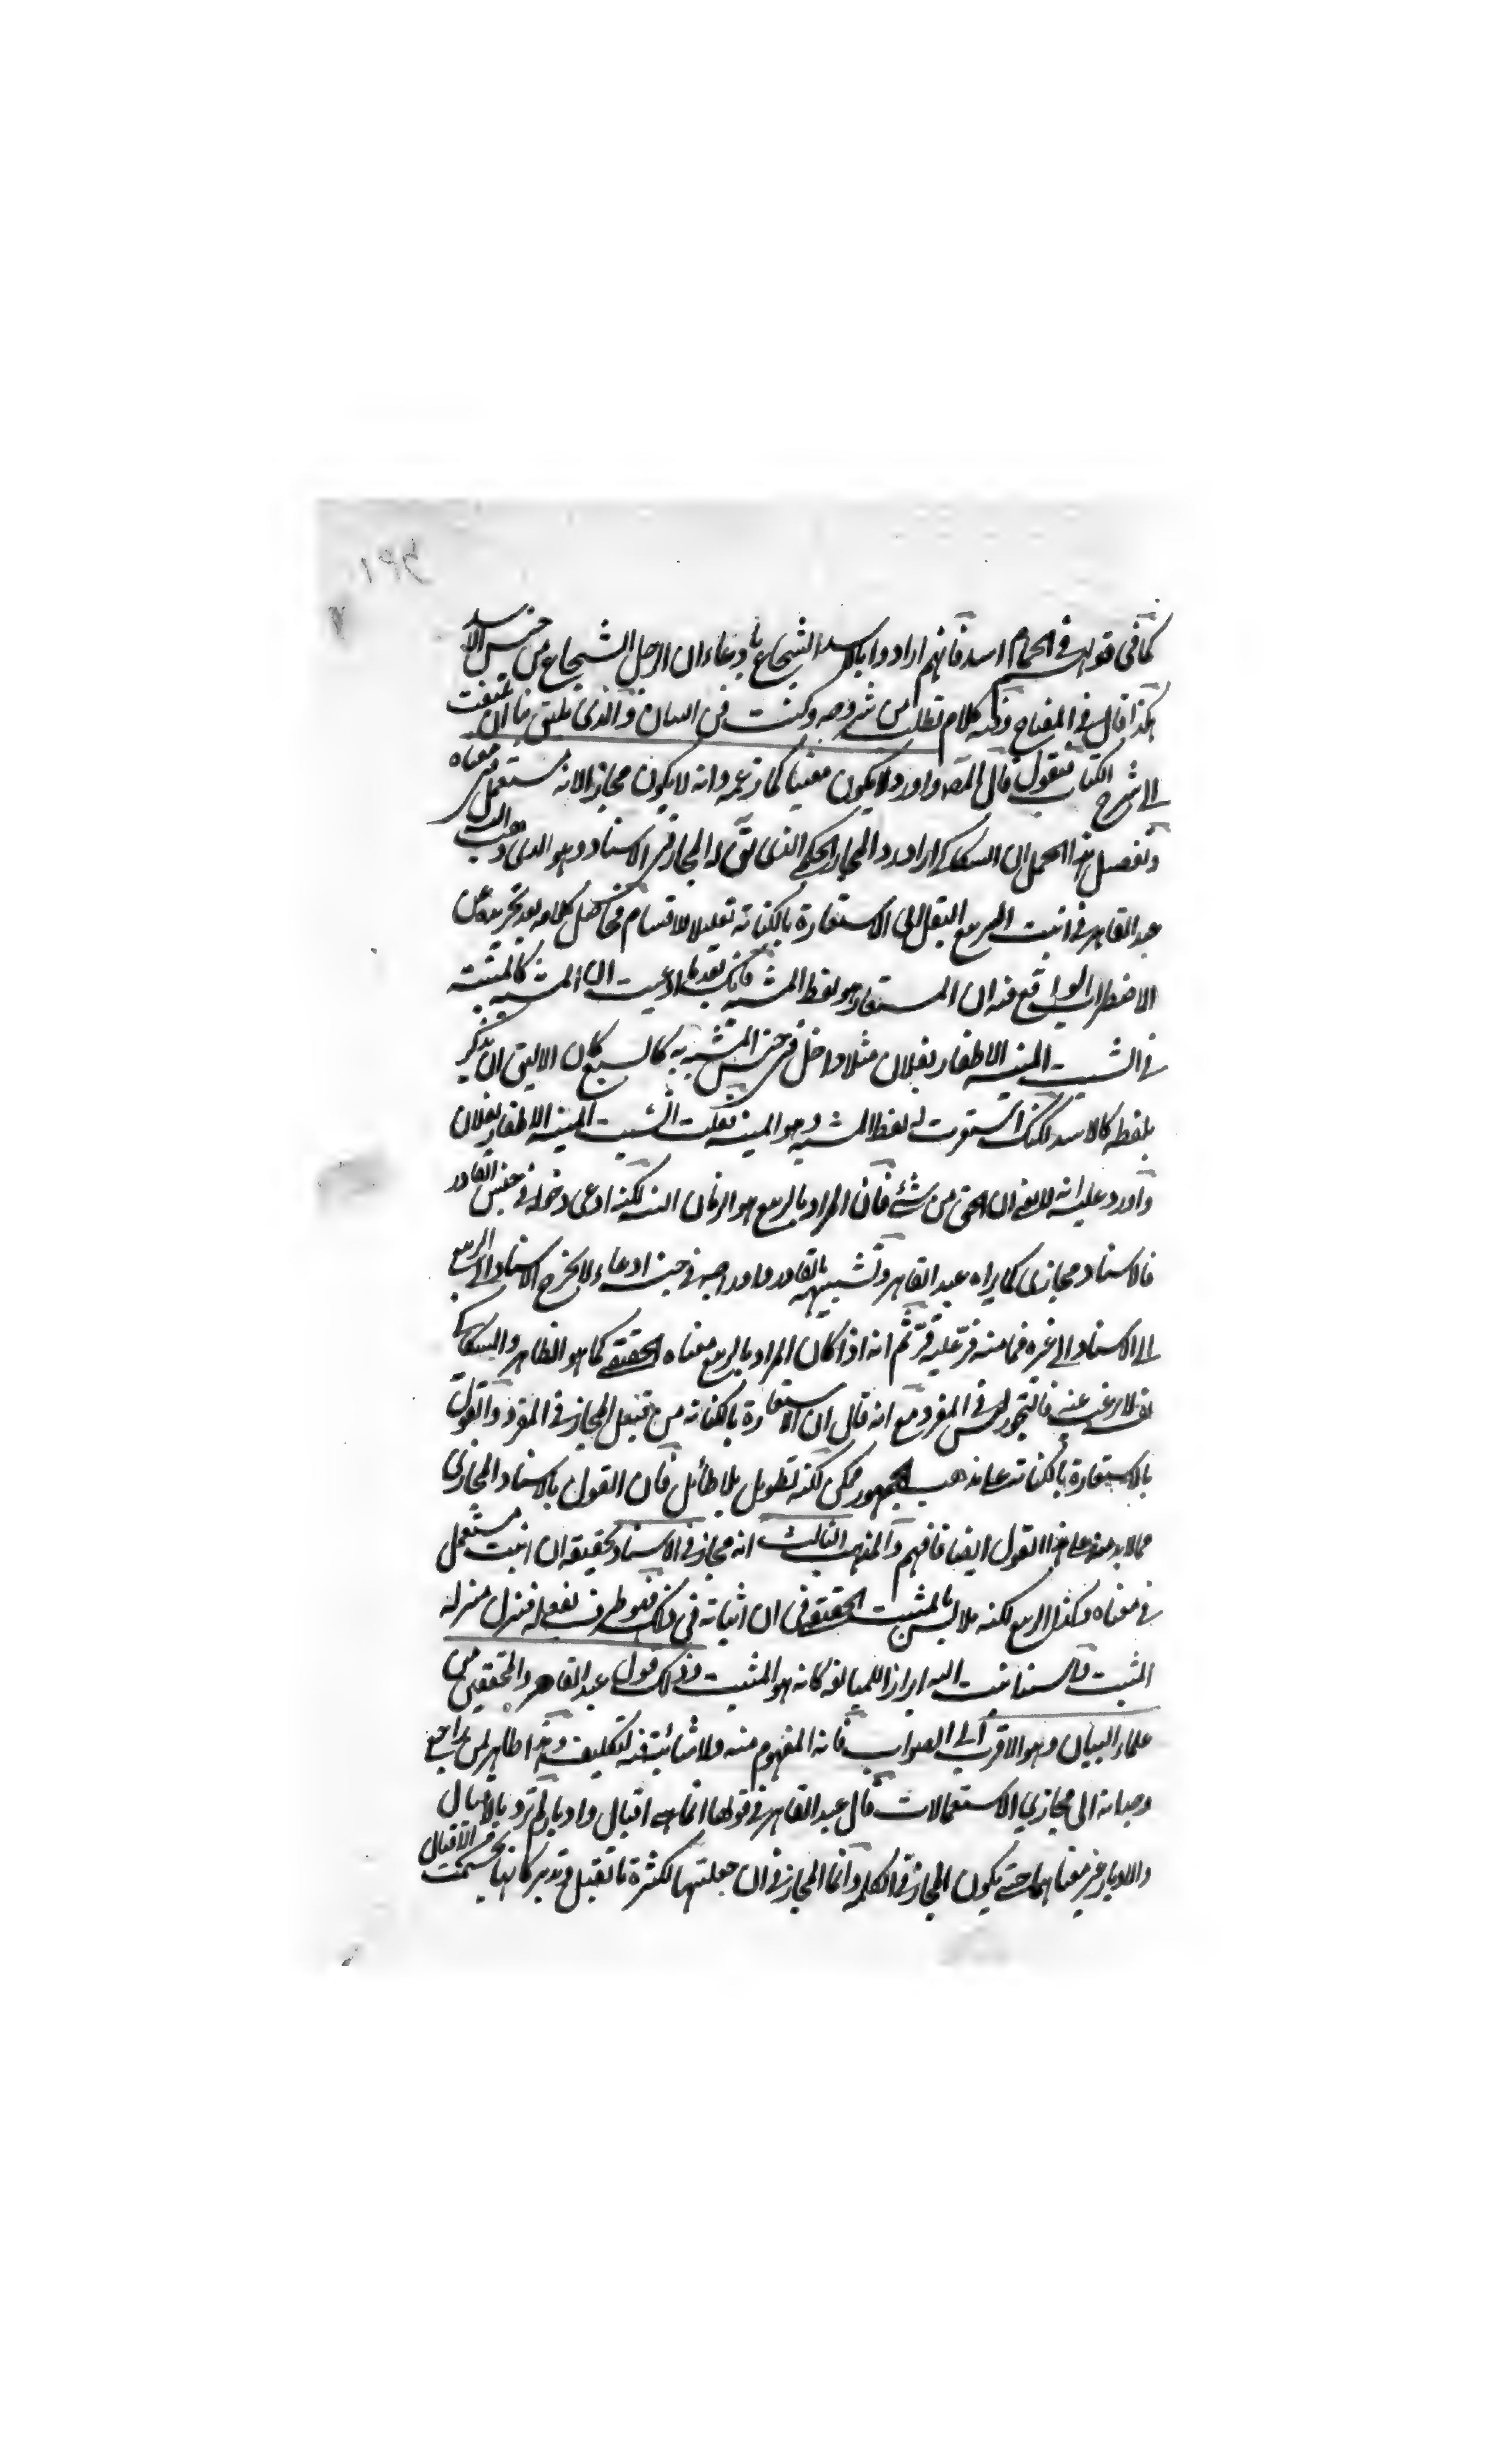 كما في قولهم في الحمام اسد فانهم ارادوا بالاسد الشجاع بادعاء ان الرجل الشجاع من جنس الاسد
هكذا قال في المفتاح وفيه كلام تطلب من شروحه وكنت فن البيان والذي يليق بنا ان نلتفت
الى شرح الكتاب فنقول قال المصـ واورد ولا يكون مغنيا كما زعمه وانه لا يكون مجازا لانه مستعمل في معناه
وتفصيل هذا المجمل ان السكاكي اراد رد المجاز الحكمي الذي يق له المجاز في الاسناد وهو الذي ذهب اليه
عبد القاهر في انبت الربيع البقل الى الاستعارة بالكناية تقليلا للاقسام فحاصل كلامه بعد تجريده عن
الاضطراب الواقع فيه ان المستعار هو لفظ المشبه فانك بعد ما ادعيت ان المشبه كالمنية
في انشبت المنية الاظفار بفلان مثلا داخل في جنس المشبه به كالسبع كان الاليق ان يذكر
بلفظه كالاسد لكنك استعرت له لفظ المشبه وهو المنية فقلت انشبت المنية الاظفار بفلان
واورد عليه انه لا يغني ان الحق من شيء فان المراد بالربيع هو الزمان البتة لكنه ادعى دخوله في جنس القادر
فالاسناد مجازي كما يراه عبد القاهر وتشبيهه بالقادر وادراجه في جنسه ادعاء لا يخرج الاسناد الى الربيع
الى الاسناد الى غيره فما منه فرّ عليه قرّ ثم انه اذا كان المراد بالربيع معناه الحقيقي كما هو الظاهر والسكاكي
ايضا لا يرغب عنه فالتجوز ليس في المفرد مع انه قال ان الاستعارة بالكناية من قبيل المجاز في المفرد والقول
بالاستعارة بالكناية على مذهب الجمهور ممكن لكنه تطويل بلا طائل فان القول بالاسناد المجازي
مما لا بد منه على هذا القول ايضا فافهم والمذهب الثالث انه مجاز في الاسناد تحقيقه ان انبت مستعمل
في معناه وكذا الربيع لكنه ملابس بالمثبت الحقيقي في ان اثباته في ذلك فهو ظرف لفعله فنزل منزلة
المثبت واسند انبت اليه ابرازا للمبالغة كانه هو المثبت وذلك قول عبد القاهر والمحققين من
علماء البيان وهو الاقرب الى الصواب فانه المفهوم منه ولا شائبة فيه لتكلف وهذا ظاهر لمن يراجع
وجدانه الى مجازي الاستعمالات قال عبد القاهر في قولها انما هي اقبال وادبار لم ترد بالاقبال
والادبار غير معناهما حتى يكون المجاز في الكلمة وانما المجاز في ان جعلتها لكثرة ما تقبل وتدبر كانها تجسمت من الاقبال